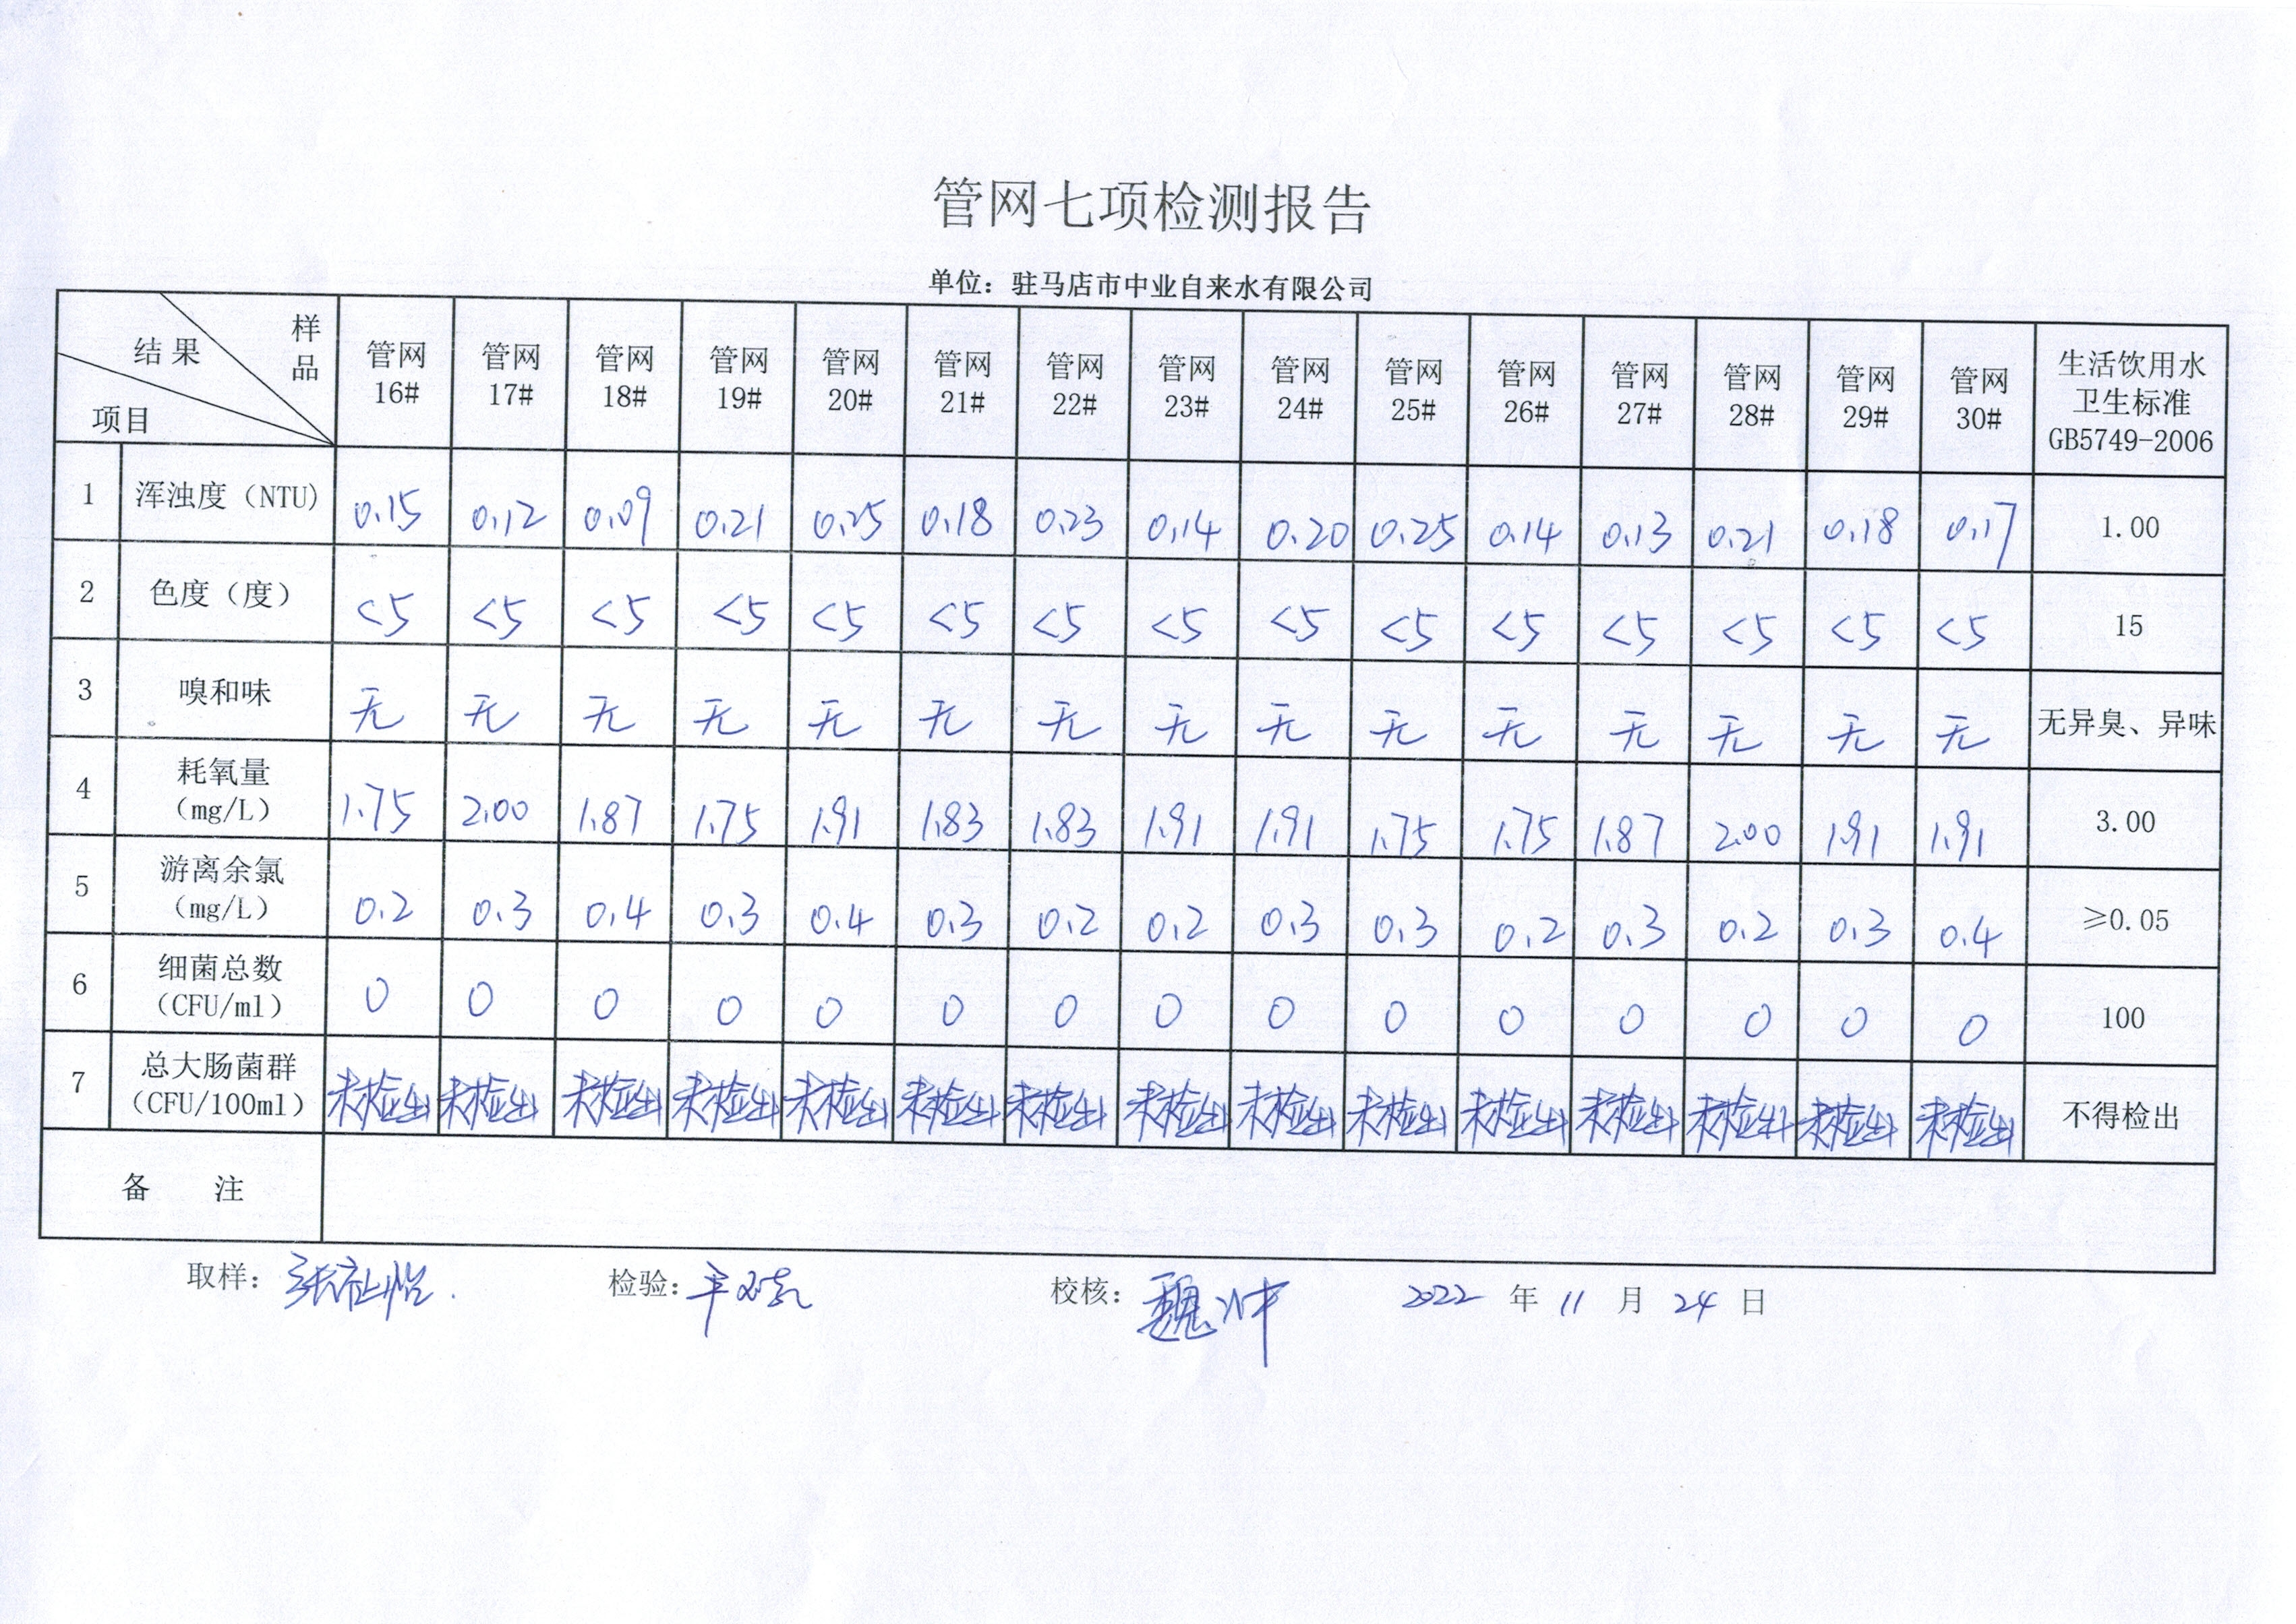 管网七项检测报告
单位：驻马店市中业自来水有限公司
结果 样品 项目 管网16# 管网17# 管网18# 管网19# 管网20# 管网21# 管网22# 管网23# 管网24# 管网25# 管网26# 管网27# 管网28# 管网29# 管网30# 生活饮用水卫生标准GB5749-2006
1 浑浊度（NTU） 0.15 0.12 0.09 0.21 0.25 0.18 0.23 0.14 0.20 0.25 0.14 0.13 0.21 0.18 0.17 1.00
2 色度（度） <5 <5 <5 <5 <5 <5 <5 <5 <5 <5 <5 <5 <5 <5 <5 15
3 嗅和味 无 无 无 无 无 无 无 无 无 无 无 无 无 无 无 无异臭、异味
4 耗氧量（mg/L） 1.75 2.00 1.87 1.75 1.91 1.83 1.83 1.91 1.91 1.75 1.75 1.87 2.00 1.91 1.91 3.00
5 游离余氯（mg/L） 0.2 0.3 0.4 0.3 0.4 0.3 0.2 0.2 0.3 0.3 0.2 0.3 0.2 0.3 0.4 ≥0.05
6 细菌总数（CFU/ml） 0 0 0 0 0 0 0 0 0 0 0 0 0 0 0 100
7 总大肠菌群（CFU/100ml） 未检出 未检出 未检出 未检出 未检出 未检出 未检出 未检出 未检出 未检出 未检出 未检出 未检出 未检出 未检出 不得检出
备 注
取样： 检验： 校核：魏冲 2022 年 11 月 24 日